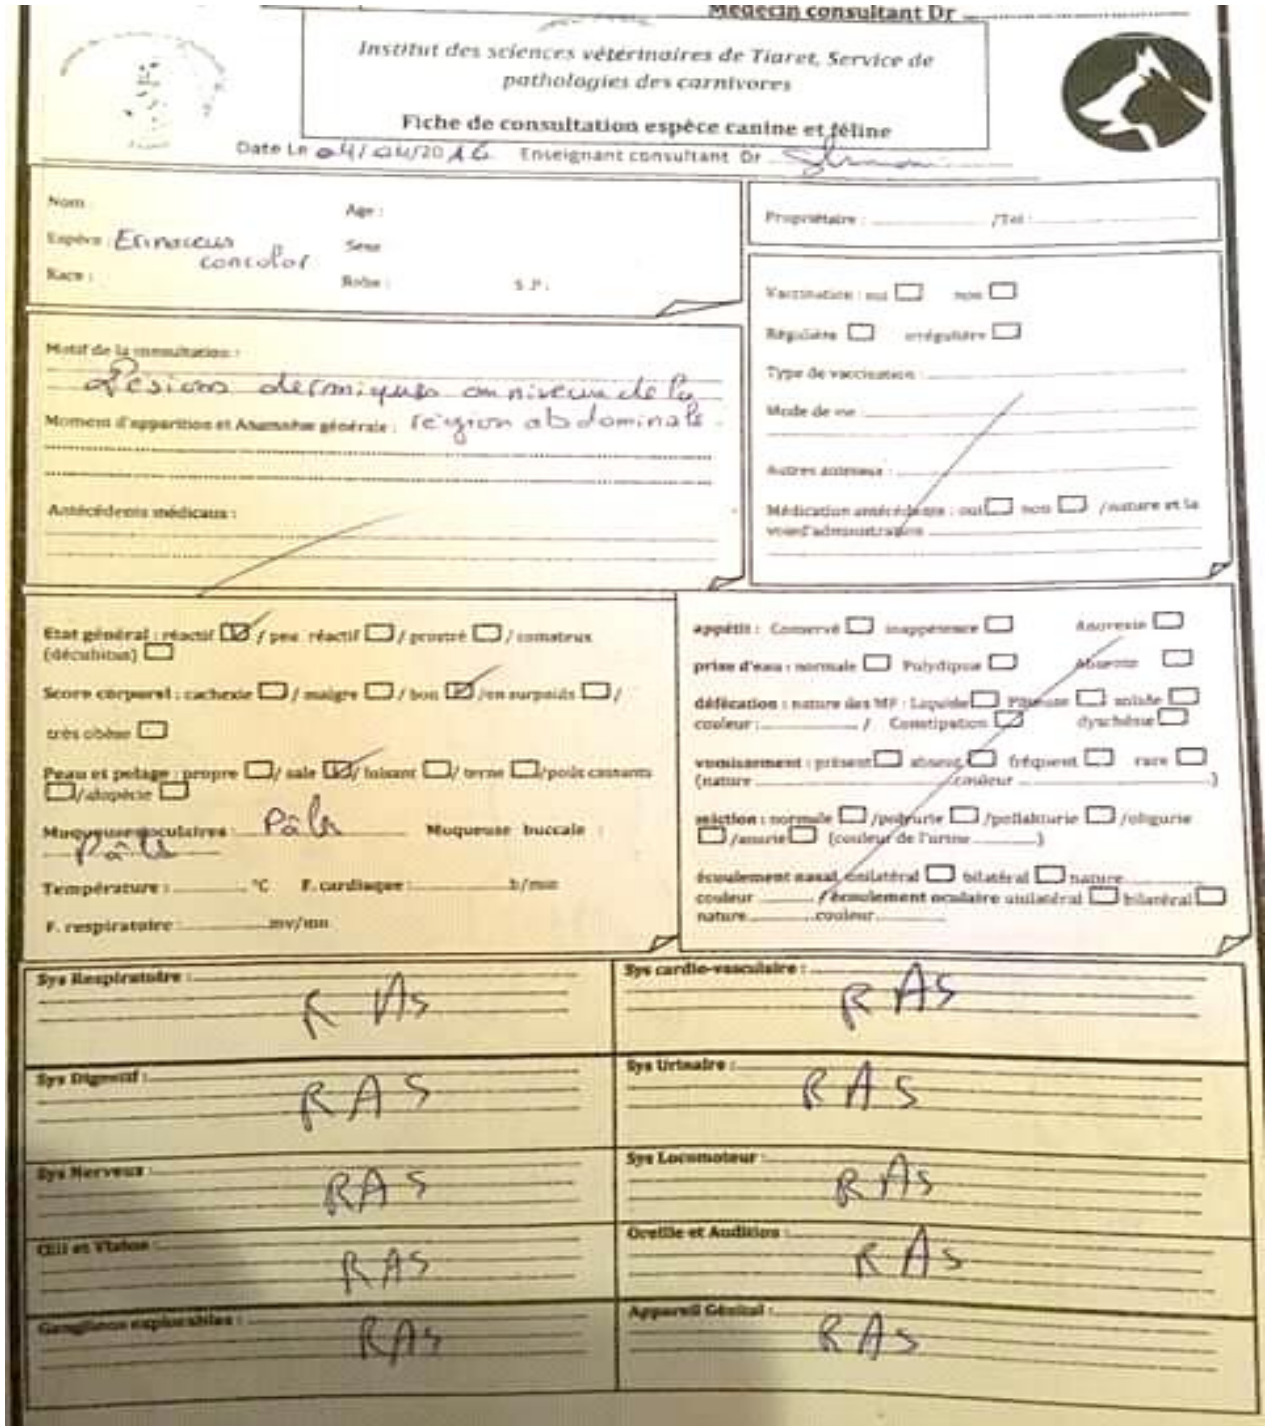 Médecin consultant Dr
Institut des sciences vétérinaires de Tiaret, Service de
pathologies des carnivores
Fiche de consultation espèce canine et féline
Date Le 04/04/2016 Enseignant consultant Dr
Nom : Age :
Espèce : Erinaceus Sexe
concolor
Race : Robe : S.P :
Propriétaire : /Tel :
Vaccination : oui non
Régulière irrégulière
Type de vaccination :
Mode de vie
Autres animaux :
Médication antécédente : oui non /nature et la
voie d'administration
Motif de la consultation :
Lésions dermiques au niveau de la
Moment d'apparition et Anamnèse générale : région abdominale.
Antécédents médicaux :
Etat général : réactif / peu réactif / prostré / comateux
(décubitus)
Score corporel : cachexie / maigre / bon /en surpoids /
très obèse
Peau et pelage : propre / sale / luisant / terne /poils cassants
/alopécie
Muqueuse oculaires : Pâle Muqueuse buccale :
Pâle
Température : °C F. cardiaque : b/min
F. respiratoire : mv/mn
appétit : Conservé inappétence Anorexie
prise d'eau : normale Polydipsie Absente
défécation : nature des MF : Liquide Pâteuse solide
couleur : / Constipation dyschésie
vomissement : présent absent fréquent rare
(nature couleur )
miction : normale /polyurie /pollakiurie /oligurie
/anurie (couleur de l'urine )
écoulement nasal unilatéral bilatéral nature
couleur / écoulement oculaire unilatéral bilatéral
nature couleur
Sys Respiratoire : RAS
Sys cardio-vasculaire : RAS
Sys Digestif : RAS
Sys Urinaire : RAS
Sys Nerveux : RAS
Sys Locomoteur : RAS
Œil et Vision : RAS
Oreille et Audition : RAS
Ganglions explorables : RAS
Appareil Génital : RAS